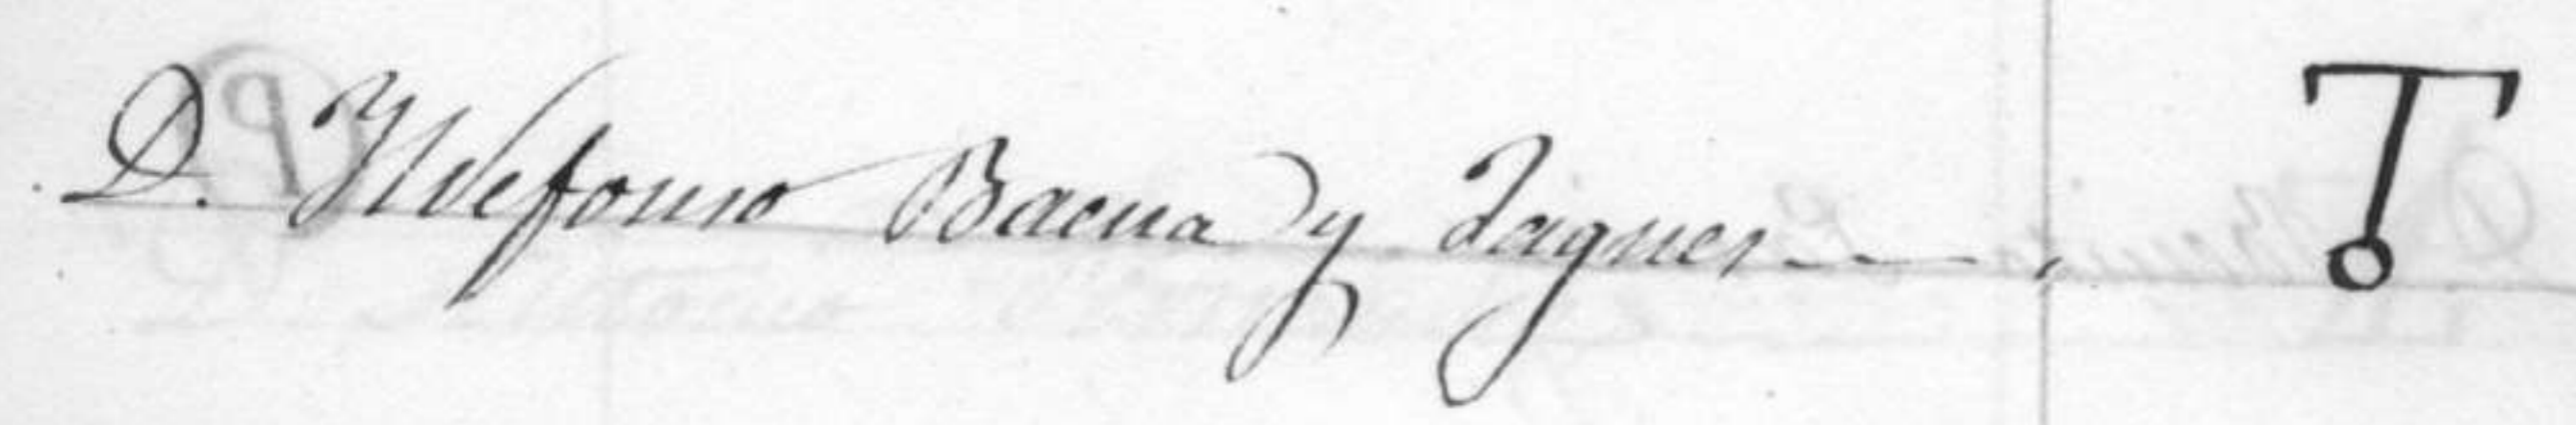 D. Yldefonso Baena y Jaques T